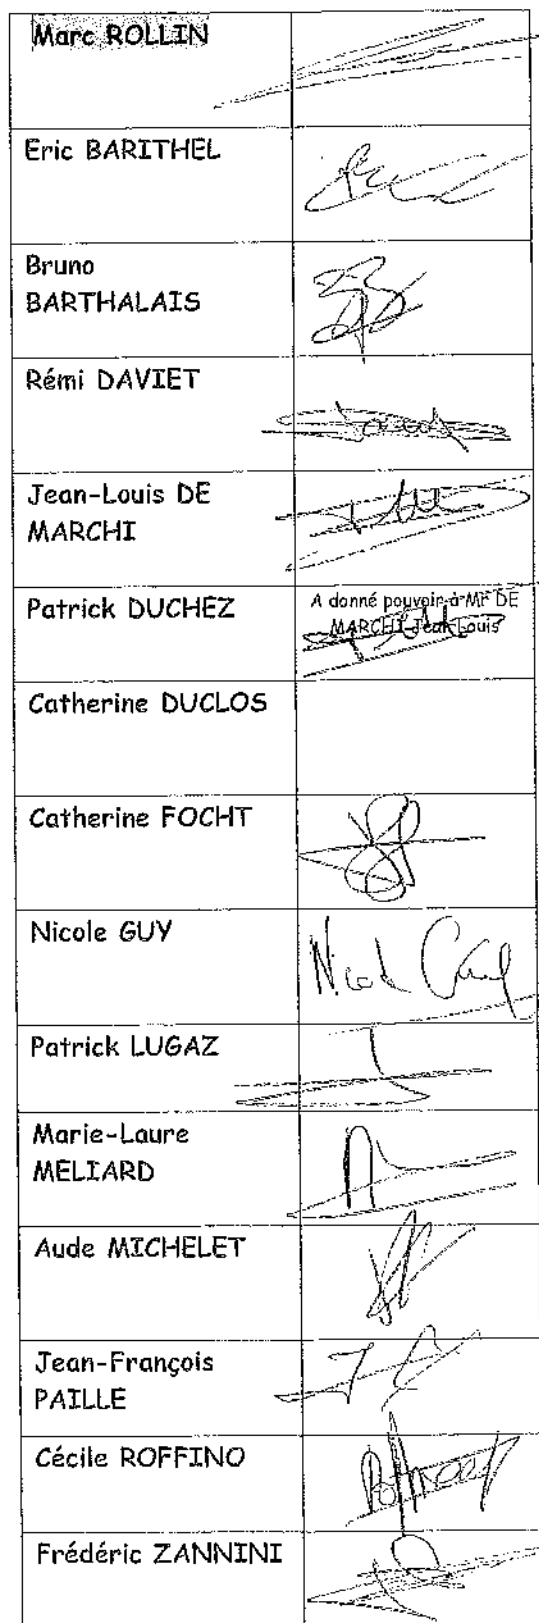 Marc ROLLIN
Eric BARITHEL
Bruno
BARTHALAIS
Rémi DAVIET
Jean-Louis DE
MARCHI
Patrick DUCHEZ
A donné pouvoir à Mr DE
MARCHI Jean-Louis
Catherine DUCLOS
Catherine FOCHT
Nicole GUY
Nicole Guy
Patrick LUGAZ
Marie-Laure
MELIARD
Aude MICHELET
Jean-François
PAILLE
Cécile ROFFINO
Frédéric ZANNINI